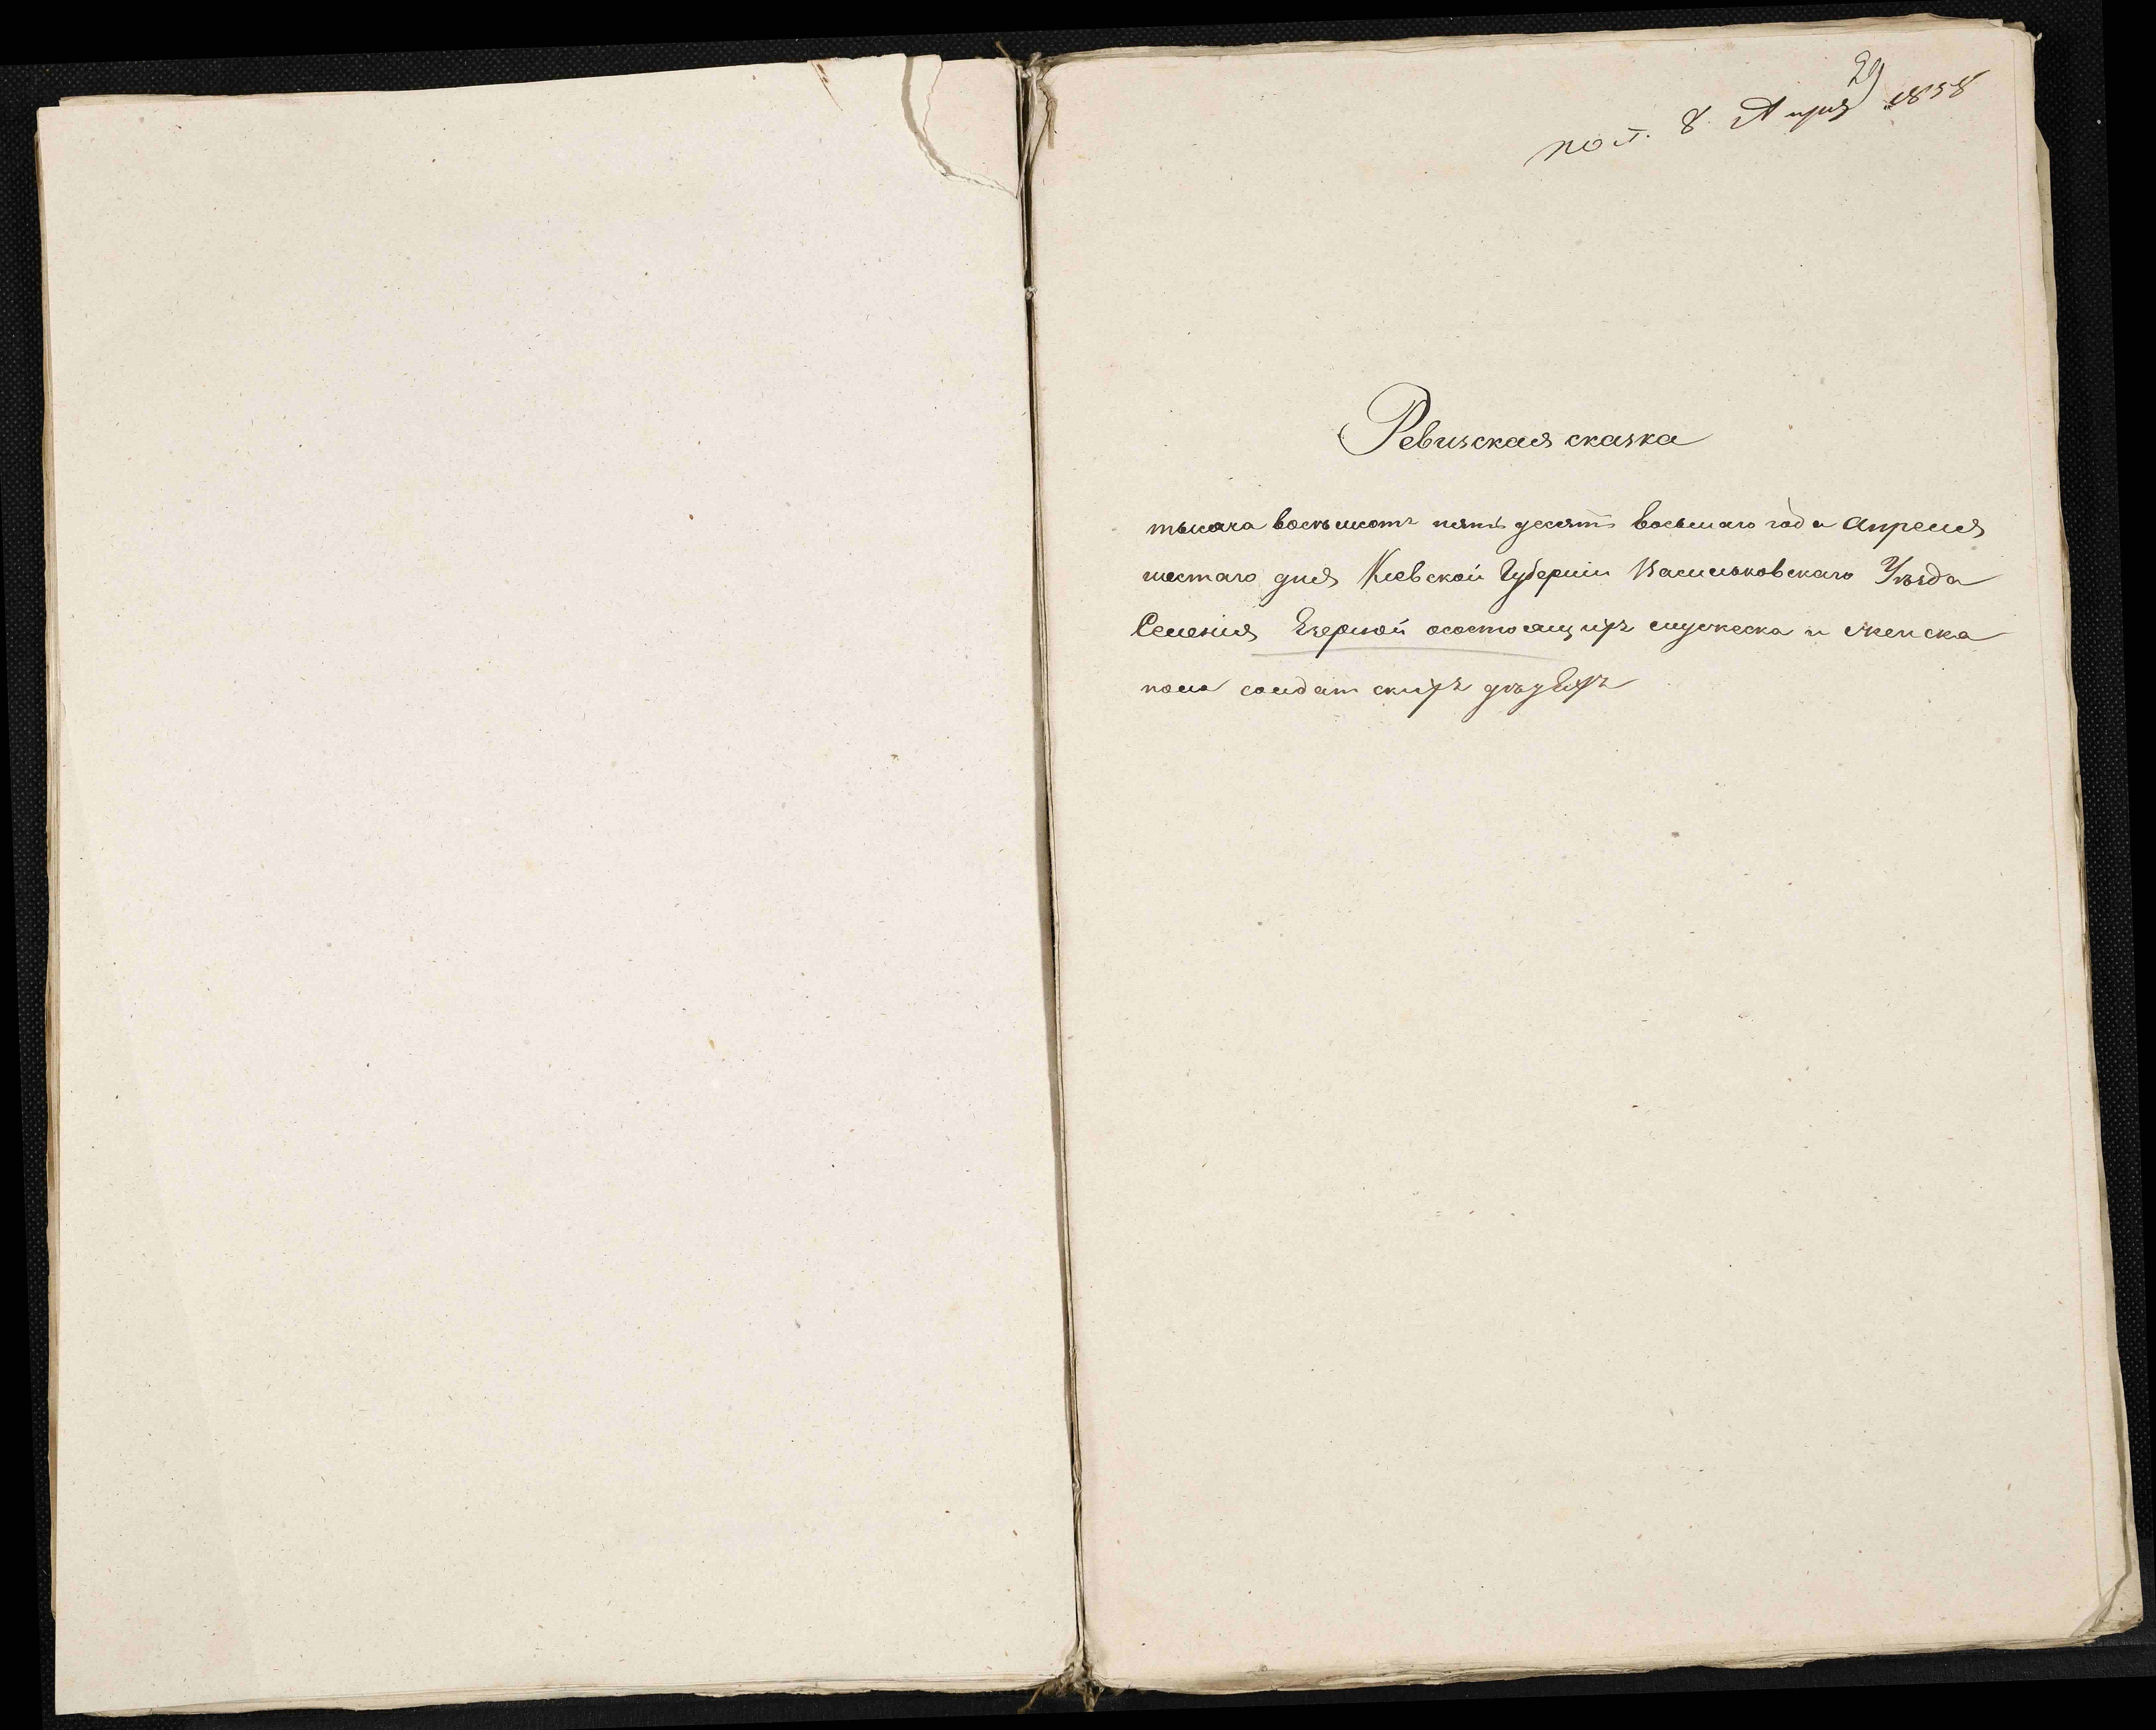 29
пол. 8 Апрѣ 1858
Ревизская сказка
тысяча восемьсотъ пятьдесятъ восьмаго года Апреля
шестаго дня Кіевской Губерніи Васильковскаго Уѣзда
Селенія Езерной осостоящихъ мужеска и женска
пола солдатскихъ дѣтѣхъ